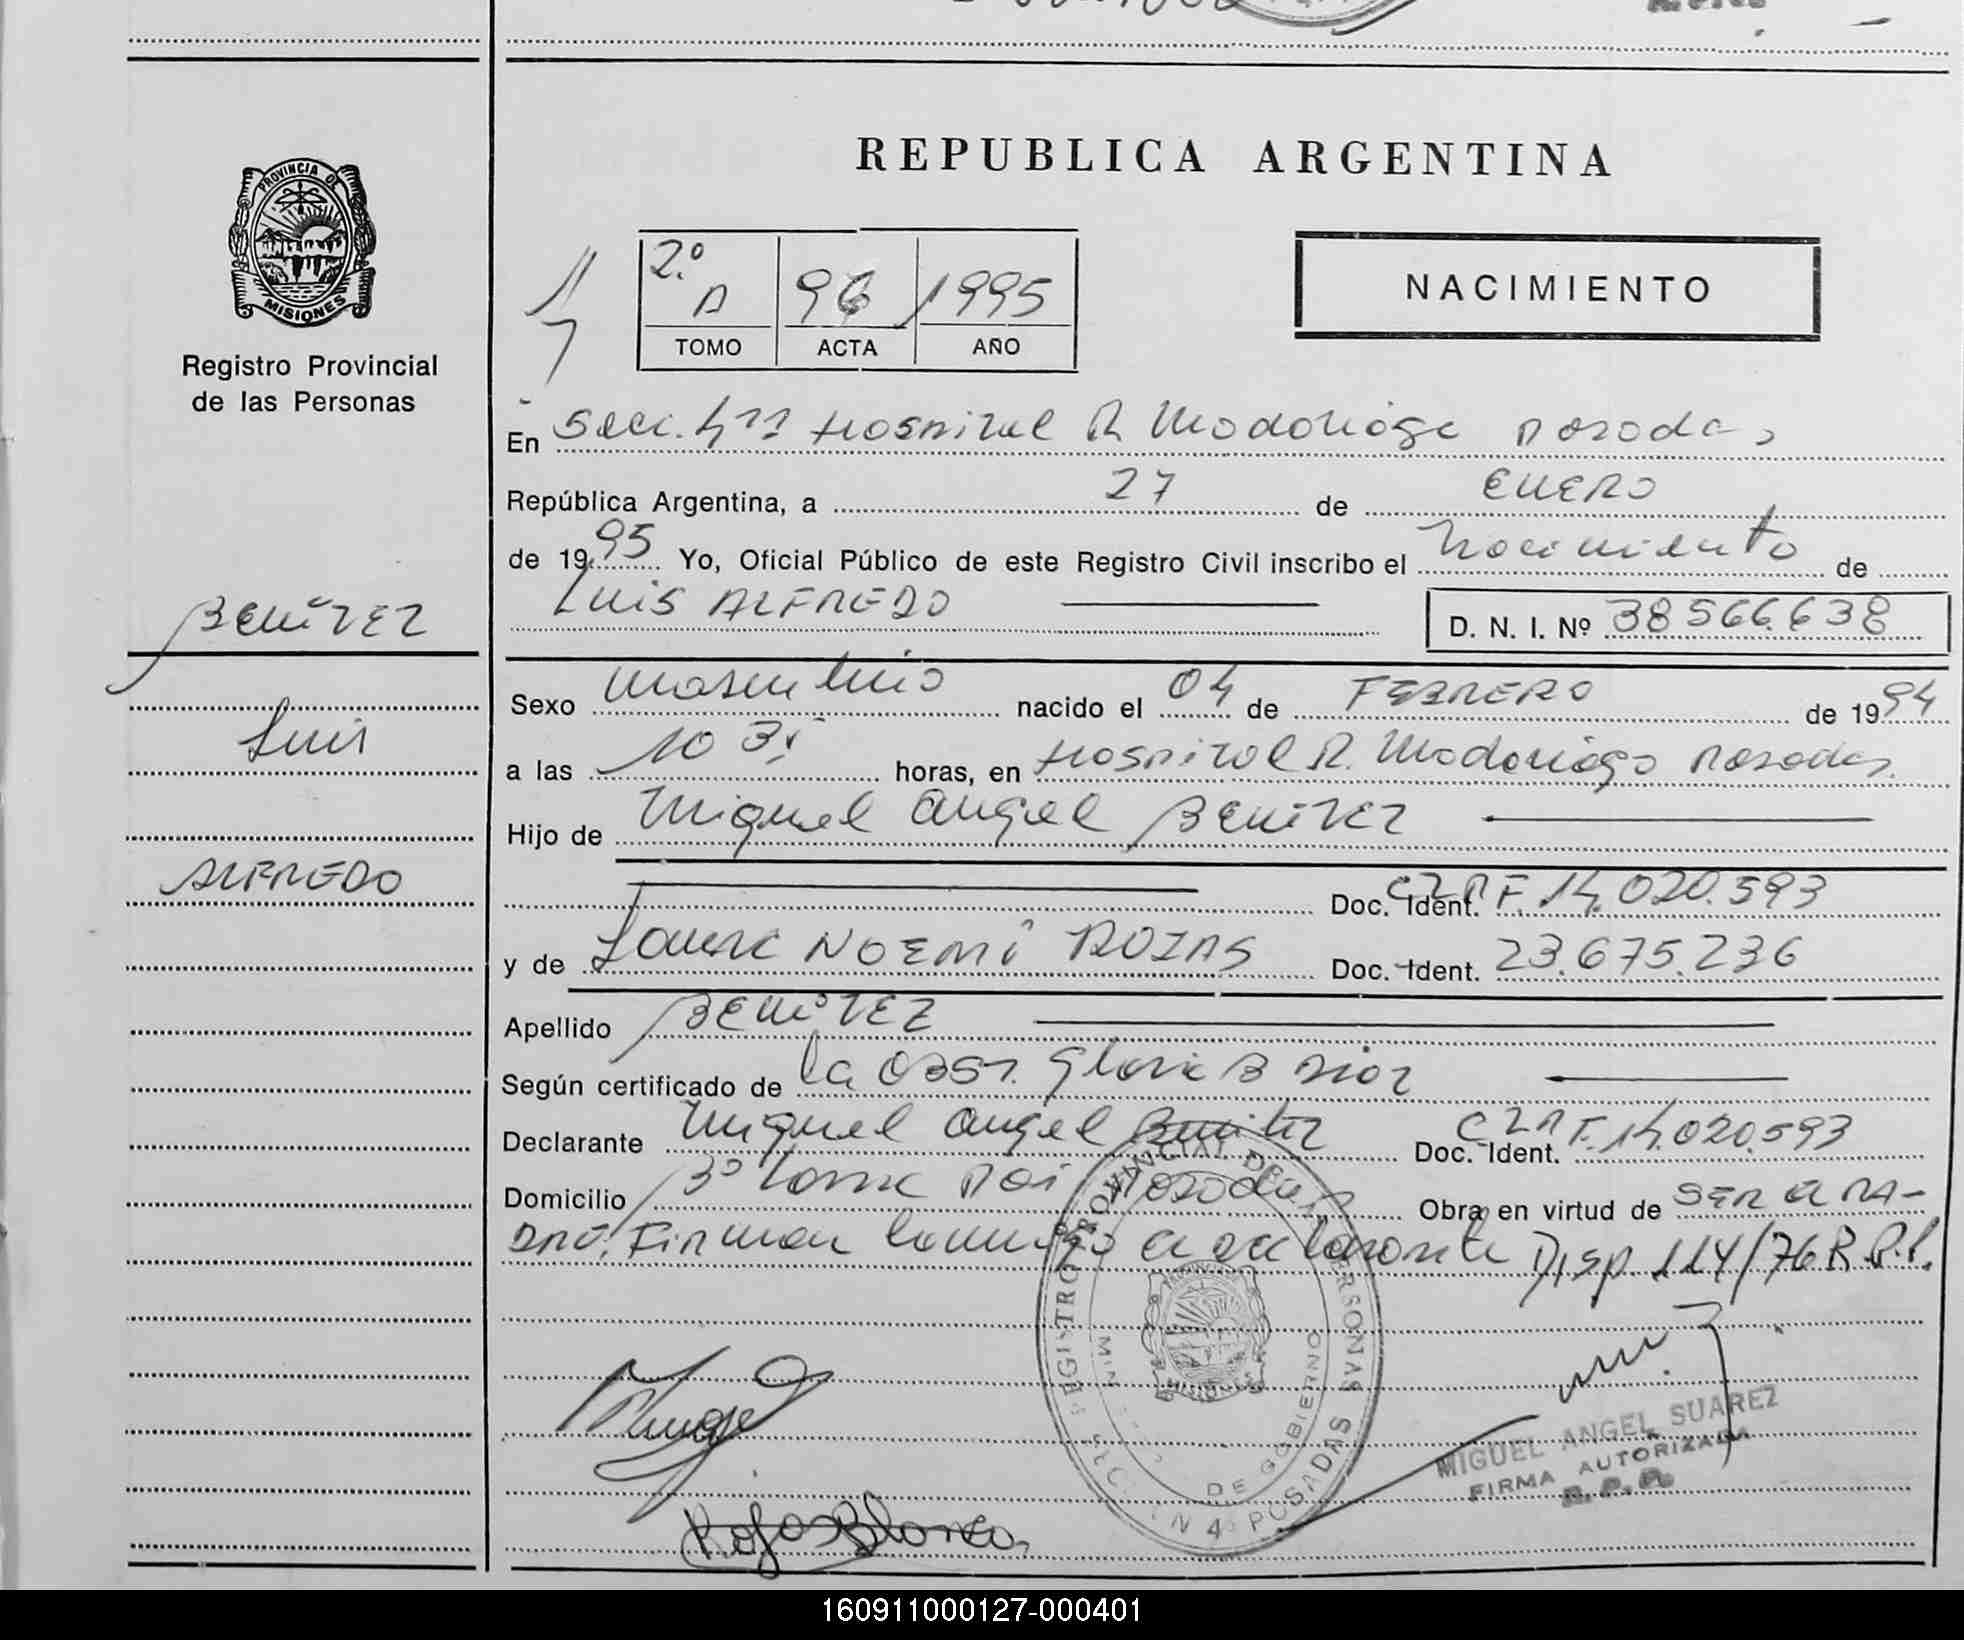 REPUBLICA ARGENTINA
PROVINCIA DE
MISIONES
Registro Provincial
de las Personas
2.º A 96 1995
TOMO ACTA AÑO
NACIMIENTO
En Secc. 4ta Hospital R Madariaga Posadas
República Argentina, a 27 de ENERO
de 1995 Yo, Oficial Público de este Registro Civil inscribo el Nacimiento de
LUIS ALFREDO D. N. I. Nº 38566.638
BENÍTEZ
Luis
ALFREDO
Sexo Masculino nacido el 04 de FEBRERO de 1994
a las 10 35 horas, en Hospital R. Madariaga Posadas.
Hijo de Miguel Angel BENÍTEZ
Doc. Ident. F. 14.020.593
y de Laura NOEMÍ ROJAS Doc. Ident. 23.675.236
Apellido BENÍTEZ
Según certificado de la Obst. Gloria B
Declarante Miguel Angel Benitez Doc. Ident. F. 14.020.593
Domicilio Posadas Obra en virtud de SER EL PA-
DRE. Firman conmigo el declarante Disp. 114/76 R.P.P.
REGISTRO PROVINCIAL DE LAS PERSONAS
MISIONES
DE GOBIERNO
4º POSADAS
Rojas Blanca
MIGUEL ANGEL SUAREZ
FIRMA AUTORIZADA
R.P.P.
160911000127-000401